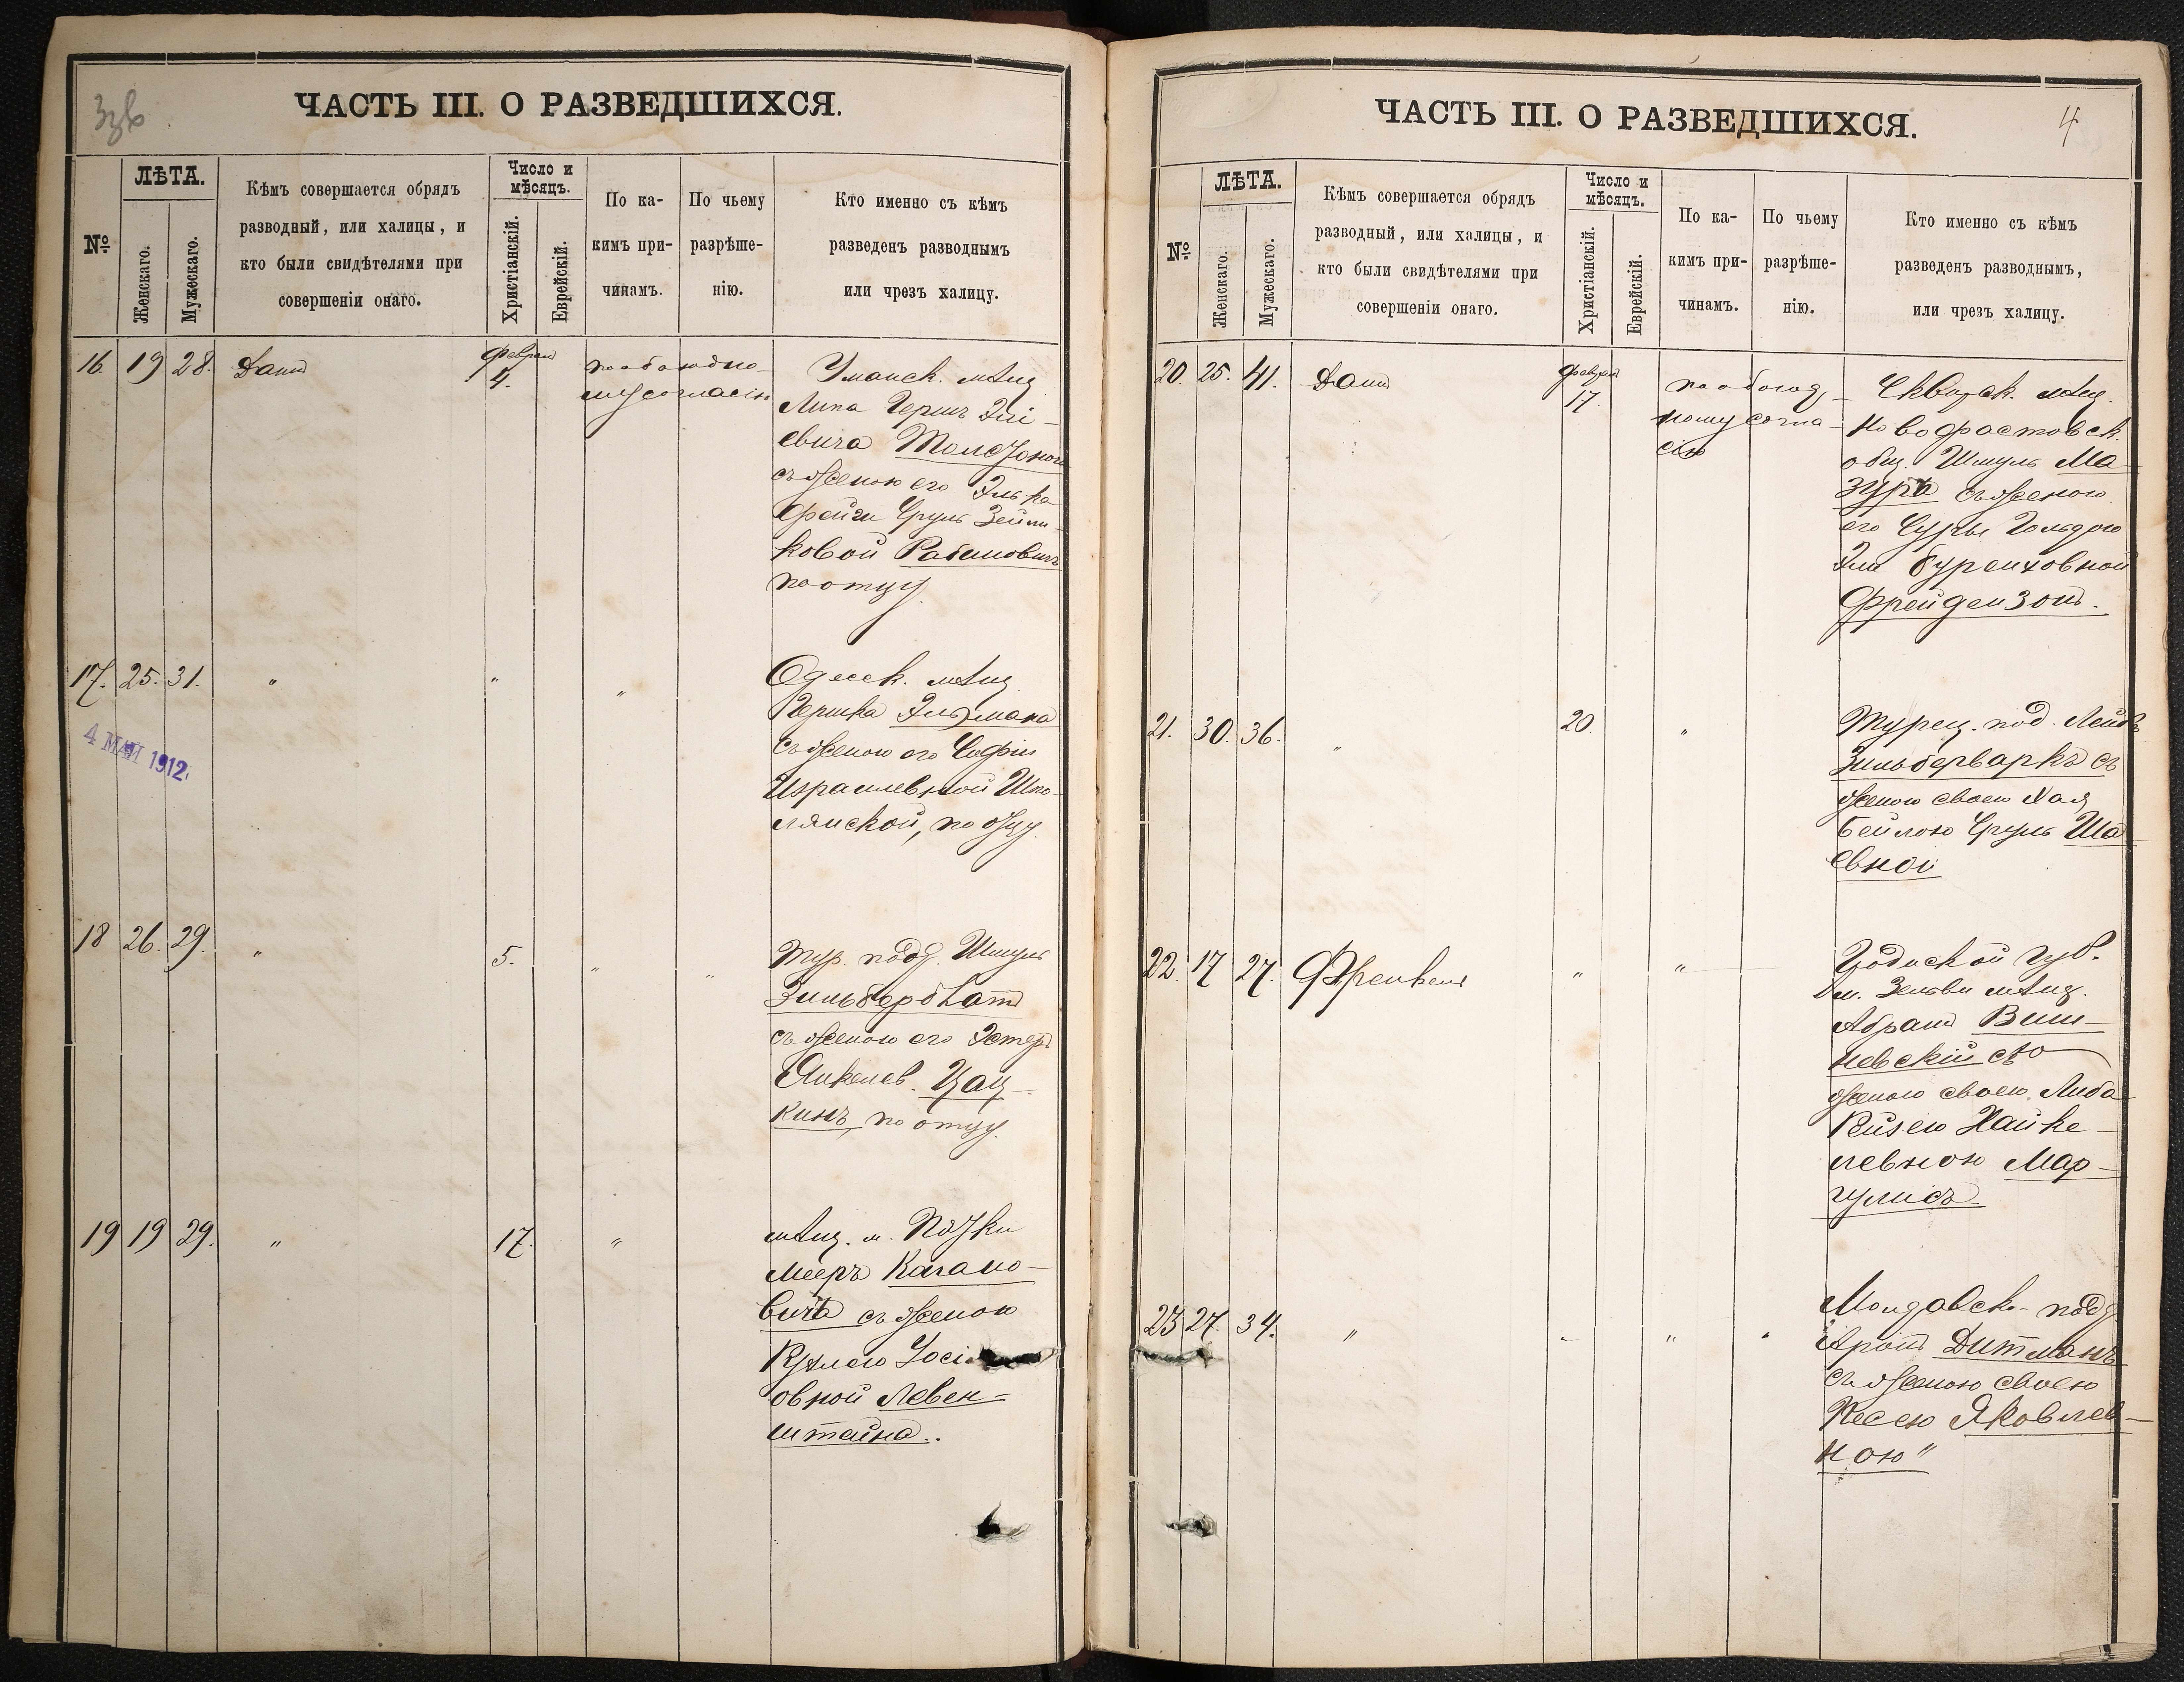 Ззв
ЧАСТЬ III. О РАЗВЕДШИХСЯ.
№
ЛѢТА.
Женскаго.
Мужескаго.
Кѣмъ совершается обрядъ
разводный, или халицы, и
кто были свидѣтелями при
совершеніи онаго.
Число и
мѣсяцъ.
Христіанскій.
Еврейскій.
По ка-
кимъ при-
чинамъ.
По чьему
разрѣше-
нію.
Кто именно съ кѣмъ
разведенъ разводнымъ
или чрезъ халицу.
16. 19 28.
феврал
4.
по обоюдно-
му согласію
Уманск. мѣщ
Липа Гершъ Элі-
евича
съ женою его Элька
Фейги Сруль Зейли-
ковой Рабиновичъ
по отцу
17. 25. 31. " " "
4 МАЙ 1912.
Одесск. мѣщ.
Гершка
съ женою его Софіи
Израилевной Шпо-
лянской, по отцу.
18 26. 29. " 5. " "
Тур. подд. Шмуль
Зильберблатъ
съ женою его Эстеръ
Янкелев. Цац-
кинъ, по отцу.
19 19 29. " 17. "
мѣщ. м.
Мееръ Кагано-
вича съ женою
Іосі
овной Левен-
штейна..
ЧАСТЬ III. О РАЗВЕДШИХСЯ.
4
№
ЛѢТА.
Женскаго.
Мужескаго.
Кѣмъ совершается обрядъ
разводный, или халицы, и
кто были свидѣтелями при
совершеніи онаго.
Число и
мѣсяцъ.
Христіанскій.
Еврейскій.
По ка-
кимъ при-
чинамъ.
По чьему
разрѣше-
нію.
Кто именно съ кѣмъ
разведенъ разводнымъ,
или чрезъ халицу.
20. 25. 41.
феврал
17
по обоюд-
ному согла-
сію
Сквирск. мѣщ.
Новофастовск.
общ. Шмуль Ма-
зура съ женою
его Суры Гольдою
Фрейдензонъ.
21. 30. 36. " 20 "
Турец. под. Лейбъ
Зильберваркъ съ
женою своею Хая
Бейлою Сруль Ша-
евной
22. 17 27. Френкель " "
Гродиской губ.
м. Зельви мѣщ.
Абрамъ Виш-
невскій съ
женою своею Либа
Рейзею Хайке-
левною Мар-
гулисъ
23 27. 34. " " " "
Молдавск. подд.
Аронъ Дитманъ
съ женою своею
Песею Яковлев-
ною"